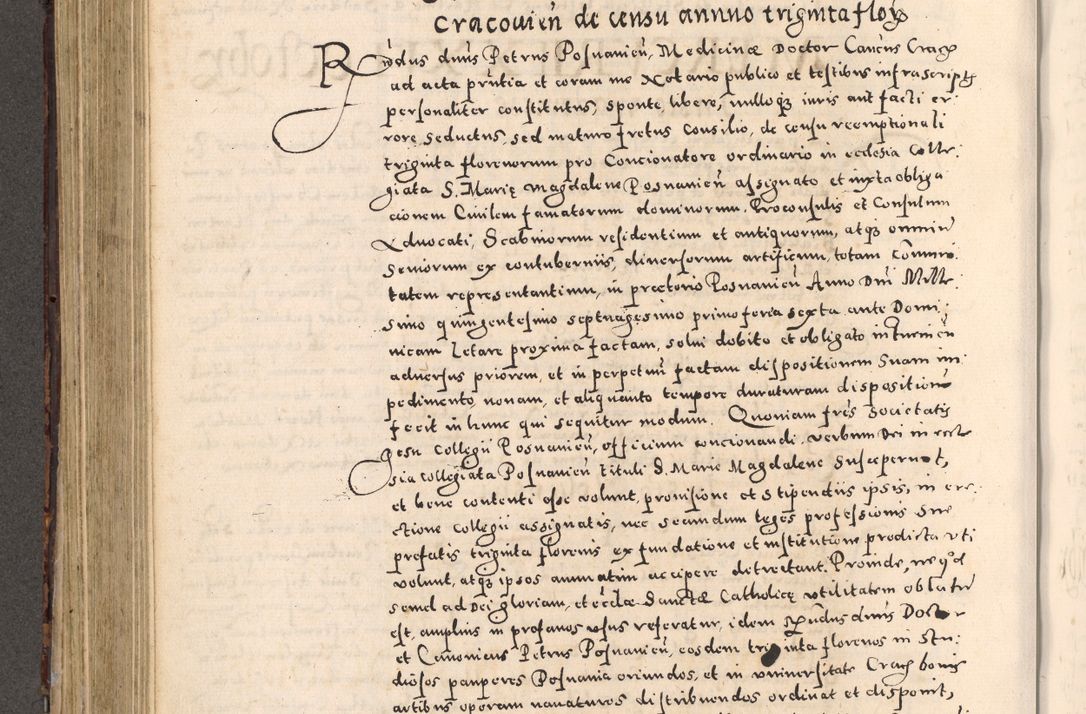 Cracovien̄ de censu annuo triginta floꝝ
R̄ndus dn̄us Petrus Posnanien̄, Medicinæ Doctor Can̄cus Cracȝ
ad acta pn̄tia et coram me Notario publico et testibus infrascriptȝ
personaliter constitutus, sponte, libere, nulloqȝ iuris aut facti er-
rore seductus, sed maturo fretus consilio, de censu reemptionali
triginta florenorum pro Concionatore ordinario in ecclesia Colle-
giata S. Marię Magdalene Posnanien̄ assignato et iuxta obliga
cionem Ciuilem famatorum dominorum Proconsulis et Consulum
Aduocati, Scabinorum residentium et antiquorum, atqȝ omniū
Seniorum ex contuberniis, diuersorum artificum, totam Commūi-
tatem representantium, in pretorio Posnanien̄ Anno Dn̄i Mille-
simo quingentesimo septuagesimo primo feria sexta ante Domi-
nicam Letare proxima factam, solui debito et obligato
aduersus priorem, et in perpetuū factam dispositionem suam im-
pedimento nonam, et aliquanto tempore duraturam dispositionē
fecit in hunc qui sequitur modum. Quoniam fr̄es Societatis
Jesu Collegii Posnanien̄, officium concionandi verbum Dei in eccle
sia collegiata Posnanien̄ tituli S. Marie Magdalene susceperunt,
et bene contenti esse volunt, prouisione et stipendiis ipsis, in ere-
ctione Collegii assignatis, nec secundum leges professionis sue
prefatis triginta florenis ex fundatione et institutione predicta vti
volunt, atqȝ ipsos annuatim accipere detrectant. Proinde, ne qd̄
semel ad Dei gloriam, et eccl̄æ Sanctæ Catholicę vtilitatem oblatū
est, amplius in profanos vsus referatur, idem Rn̄dus dn̄us Doctor
et Canonicus Petrus Posnanien̄, eosdem triginta florenos in Stu-
diosos pauperes Posnania oriundos, et in vniuersitate Cracȝ bonis
artibus operam nauaturos distribuendos ordinat et disponit,